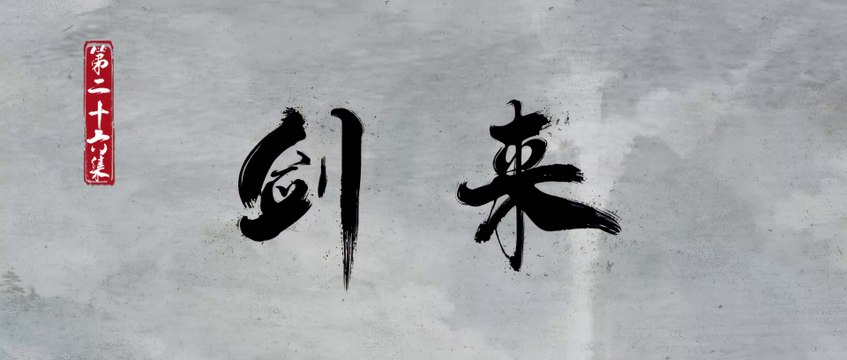 第二十六集
剑来